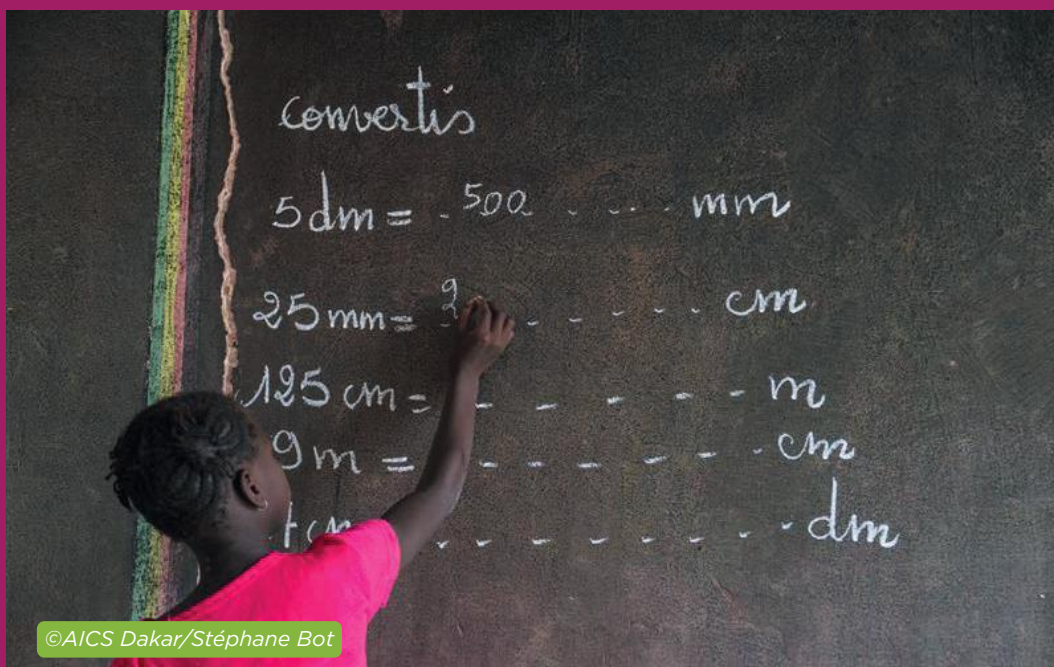 convertis
5dm = . 500 . . . . . mm
25mm = 2 - - - - - - cm
125 cm = - - - - - - m
9m = - - - - - - cm
cm . - - - - - - - dm
©AICS Dakar/Stéphane Bot